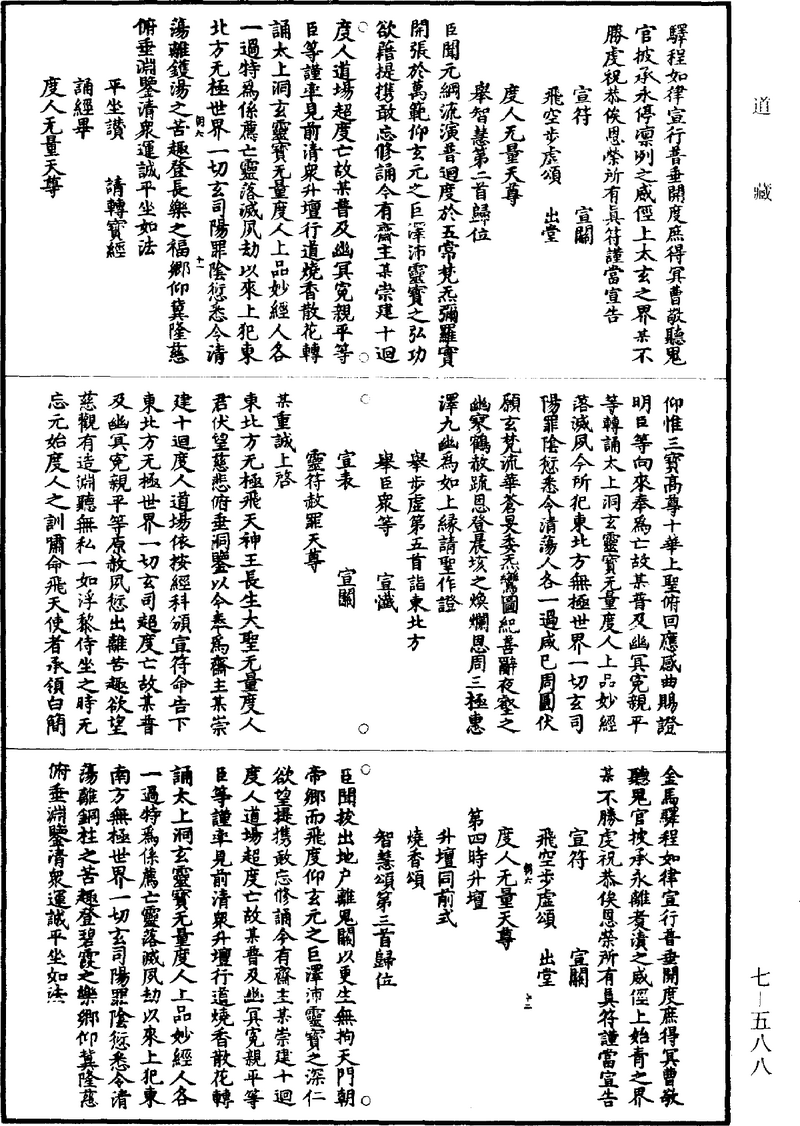 道藏
驛程如律宣行普垂開度庶得冥曹敬聽鬼
官披承永停凛冽之威徑上太玄之界某不
勝虔祝恭俟恩榮所有眞符謹當宣告
宣符 宣關
飛空步虛頌 出堂
度人无量天尊
舉智慧第二首歸位
臣聞元綱流演普迴度於五常梵炁彌羅實
開張於萬範仰玄元之巨澤沛靈寶之弘功
欲藉提携敢忘修誦今有齋主某崇建十迴
度人道場超度亡故某普及幽冥寃親平等
臣等謹率見前清衆升壇行道燒香散花轉
誦太上洞玄靈寶无量度人上品妙經人各
一過特為係薦亡靈落滅夙劫以來上犯東
北方无極世界一切玄司陽罪陰愆悉令清
蕩離鑊湯之苦趣登長樂之福鄉仰冀隆慈
俯垂淵鑒清衆運誠平坐如法
平坐讚 請轉寶經
誦經畢
度人无量天尊
仰惟三寶高尊十華上聖俯回應感曲賜證
明臣等向來奉為亡故某普及幽冥寃親平
等轉誦太上洞玄靈寶无量度人上品妙經
落滅夙今所犯東北方無極世界一切玄司
陽罪陰愆悉令清蕩人各一過咸已周圓伏
願玄梵流華蒼旻委炁鸞圖紀善辭夜壑之
幽寥鶴赦疏恩登晨垓之煥爛恩周三極惠
澤九幽為如上縁請聖作證
舉步虛第五首詣東北方
舉臣衆等 宣懺
宣表 宣關
靈符赦罪天尊
某重誠上啓
東北方无極飛天神王長生大聖无量度人
君伏望慈悲俯垂洞鑒以今奉為齋主某崇
建十迴度人道場依按經科頒宣符命告下
東北方无極世界一切玄司超度亡故某普
及幽冥寃親平等原赦夙愆出離苦趣欲望
慈觀有造淵聽無私一如浮黎侍坐之時无
忘元始度人之訓嘯命飛天使者承領白簡
金馬驛程如律宣行普垂開度庶得冥曹敬
聽鬼官披承永離煑漬之威徑上始青之界
某不勝虔祝恭俟恩榮所有眞符謹當宣告
宣符 宣關
飛空步虛頌 出堂
度人无量天尊
第四時升壇
升壇同前式
燒香頌
智慧頌第三首歸位
臣聞拔出地户離鬼關以更生無拘天門朝
帝鄉而飛度仰玄元之巨澤沛靈寶之深仁
欲望提携敢忘修誦今有齋主某崇建十迴
度人道場超度亡故某普及幽冥寃親平等
臣等謹率見前清衆升壇行道燒香散花轉
誦太上洞玄靈寶无量度人上品妙經人各
一過特為係薦亡靈落滅夙劫以來上犯東
南方無極世界一切玄司陽罪陰愆悉令清
蕩離銅柱之苦趣登碧霞之樂鄉仰冀隆慈
俯垂淵鑒清衆運誠平坐如法
七—五八八